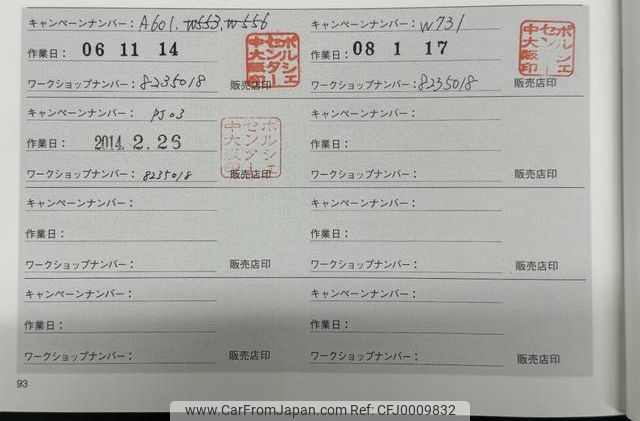 キャンペーンナンバー： A601, W553, W556
作業日： 06 11 14
ワークショップナンバー： 8235018 販売店印
ポルシェ
センター
中大阪印
キャンペーンナンバー： W731
作業日： 08 1 17
ワークショップナンバー： 8235018 販売店印
ポルシェ
セン
中大阪印
キャンペーンナンバー： PJ03
作業日： 2014. 2. 26
ワークショップナンバー： 8235018 販売店印
ポルシェ
センター
中大阪印
キャンペーンナンバー：
作業日：
ワークショップナンバー： 販売店印
キャンペーンナンバー：
作業日：
ワークショップナンバー： 販売店印
キャンペーンナンバー：
作業日：
ワークショップナンバー： 販売店印
キャンペーンナンバー：
作業日：
ワークショップナンバー： 販売店印
キャンペーンナンバー：
作業日：
ワークショップナンバー： 販売店印
93
www.CarFromJapan.com REFNO:CFJ0009832